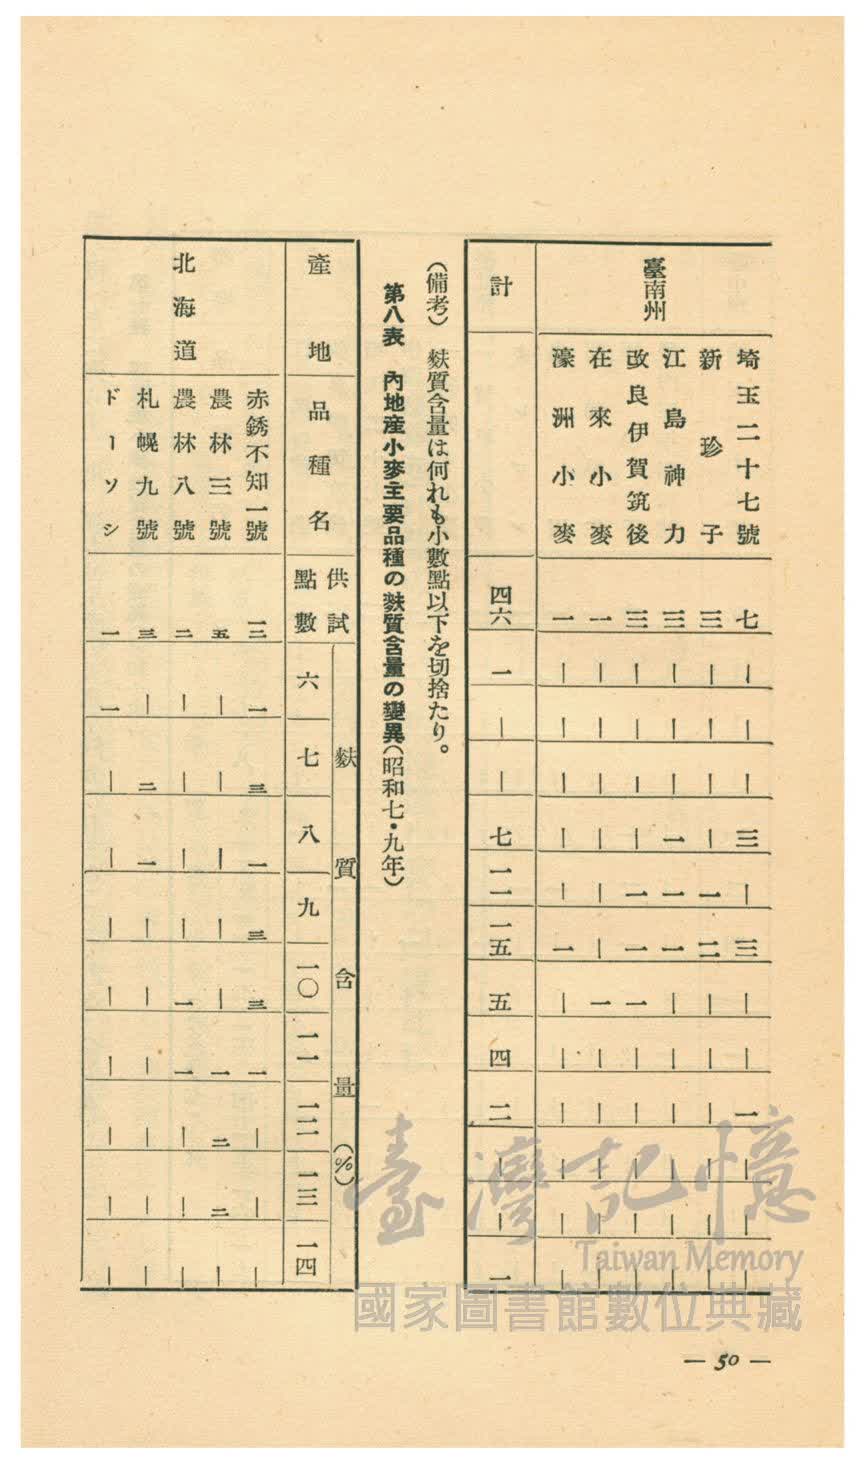 臺南州
埼玉二十七號 七 ｜ ｜ ｜ 三 ｜ 三 ｜ ｜ 一 ｜ ｜ ｜
新珍子 三 ｜ ｜ ｜ ｜ 一 二 ｜ ｜ ｜ ｜ ｜ ｜
江島神力 三 ｜ ｜ ｜ 一 一 一 ｜ ｜ ｜ ｜ ｜ ｜
改良伊賀筑後 三 ｜ ｜ ｜ ｜ 一 一 一 ｜ ｜ ｜ ｜ ｜
在來小麥 一 ｜ ｜ ｜ ｜ ｜ ｜ 一 ｜ ｜ ｜ ｜ ｜
濠洲小麥 一 ｜ ｜ ｜ ｜ ｜ 一 ｜ ｜ ｜ ｜ ｜ ｜
計 四六 一 ｜ ｜ 七 一一 一五 五 四 二 ｜ ｜ 一
(備考) 麩質含量は何れも小數點以下を切捨たり。
第八表 內地產小麥主要品種の麩質含量の變異(昭和七・九年)
產地 品種名 供試點數 麩質含量(%)
六 七 八 九 一〇 一一 一二 一三 一四
北海道
赤銹不知一號 一二 一 三 一 三 三 一 ｜ ｜ ｜
農林三號 五 ｜ ｜ ｜ ｜ ｜ 一 二 二 ｜
農林八號 二 ｜ ｜ ｜ ｜ 一 一 ｜ ｜ ｜
札幌九號 三 ｜ 二 一 ｜ ｜ ｜ ｜ ｜ ｜
ドーソン 一 一 ｜ ｜ ｜ ｜ ｜ ｜ ｜ ｜
— 50 —
臺灣記憶
Taiwan Memory
國家圖書館數位典藏